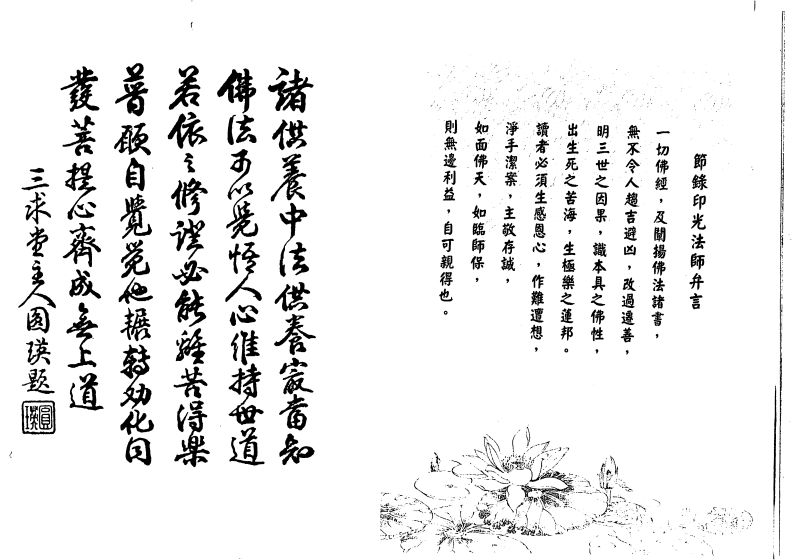 節錄印光法師弁言
一切佛經，及闡揚佛法諸書，
無不令人趨吉避凶，改過遷善，
明三世之因果，識本具之佛性，
出生死之苦海，生極樂之蓮邦。
讀者必須生感恩心，作難遭想，
淨手潔案，主敬存誠，
如面佛天，如臨師保，
則無邊利益，自可親得也。
諸供養中法供養最當知
佛法可以覺悟人心維持世道
若依之修證必能離苦得樂
普願自覺覺他輾轉勸化同
發菩提心齊成無上道
三求堂主人圓瑛題
圓瑛